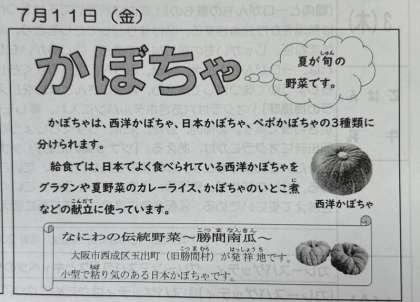 7月11日（金）
かぼちゃ
夏が旬の
野菜です。
かぼちゃは、西洋かぼちゃ、日本かぼちゃ、ペポかぼちゃの3種類に
分けられます。
給食では、日本でよく食べられている西洋かぼちゃを
グラタンや夏野菜のカレーライス、かぼちゃのいとこ煮
などの献立に使っています。
西洋かぼちゃ
なにわの伝統野菜～勝間南瓜～
大阪市西成区玉出町（旧勝間村）が発祥地です。
小型で粘り気のある日本かぼちゃです。